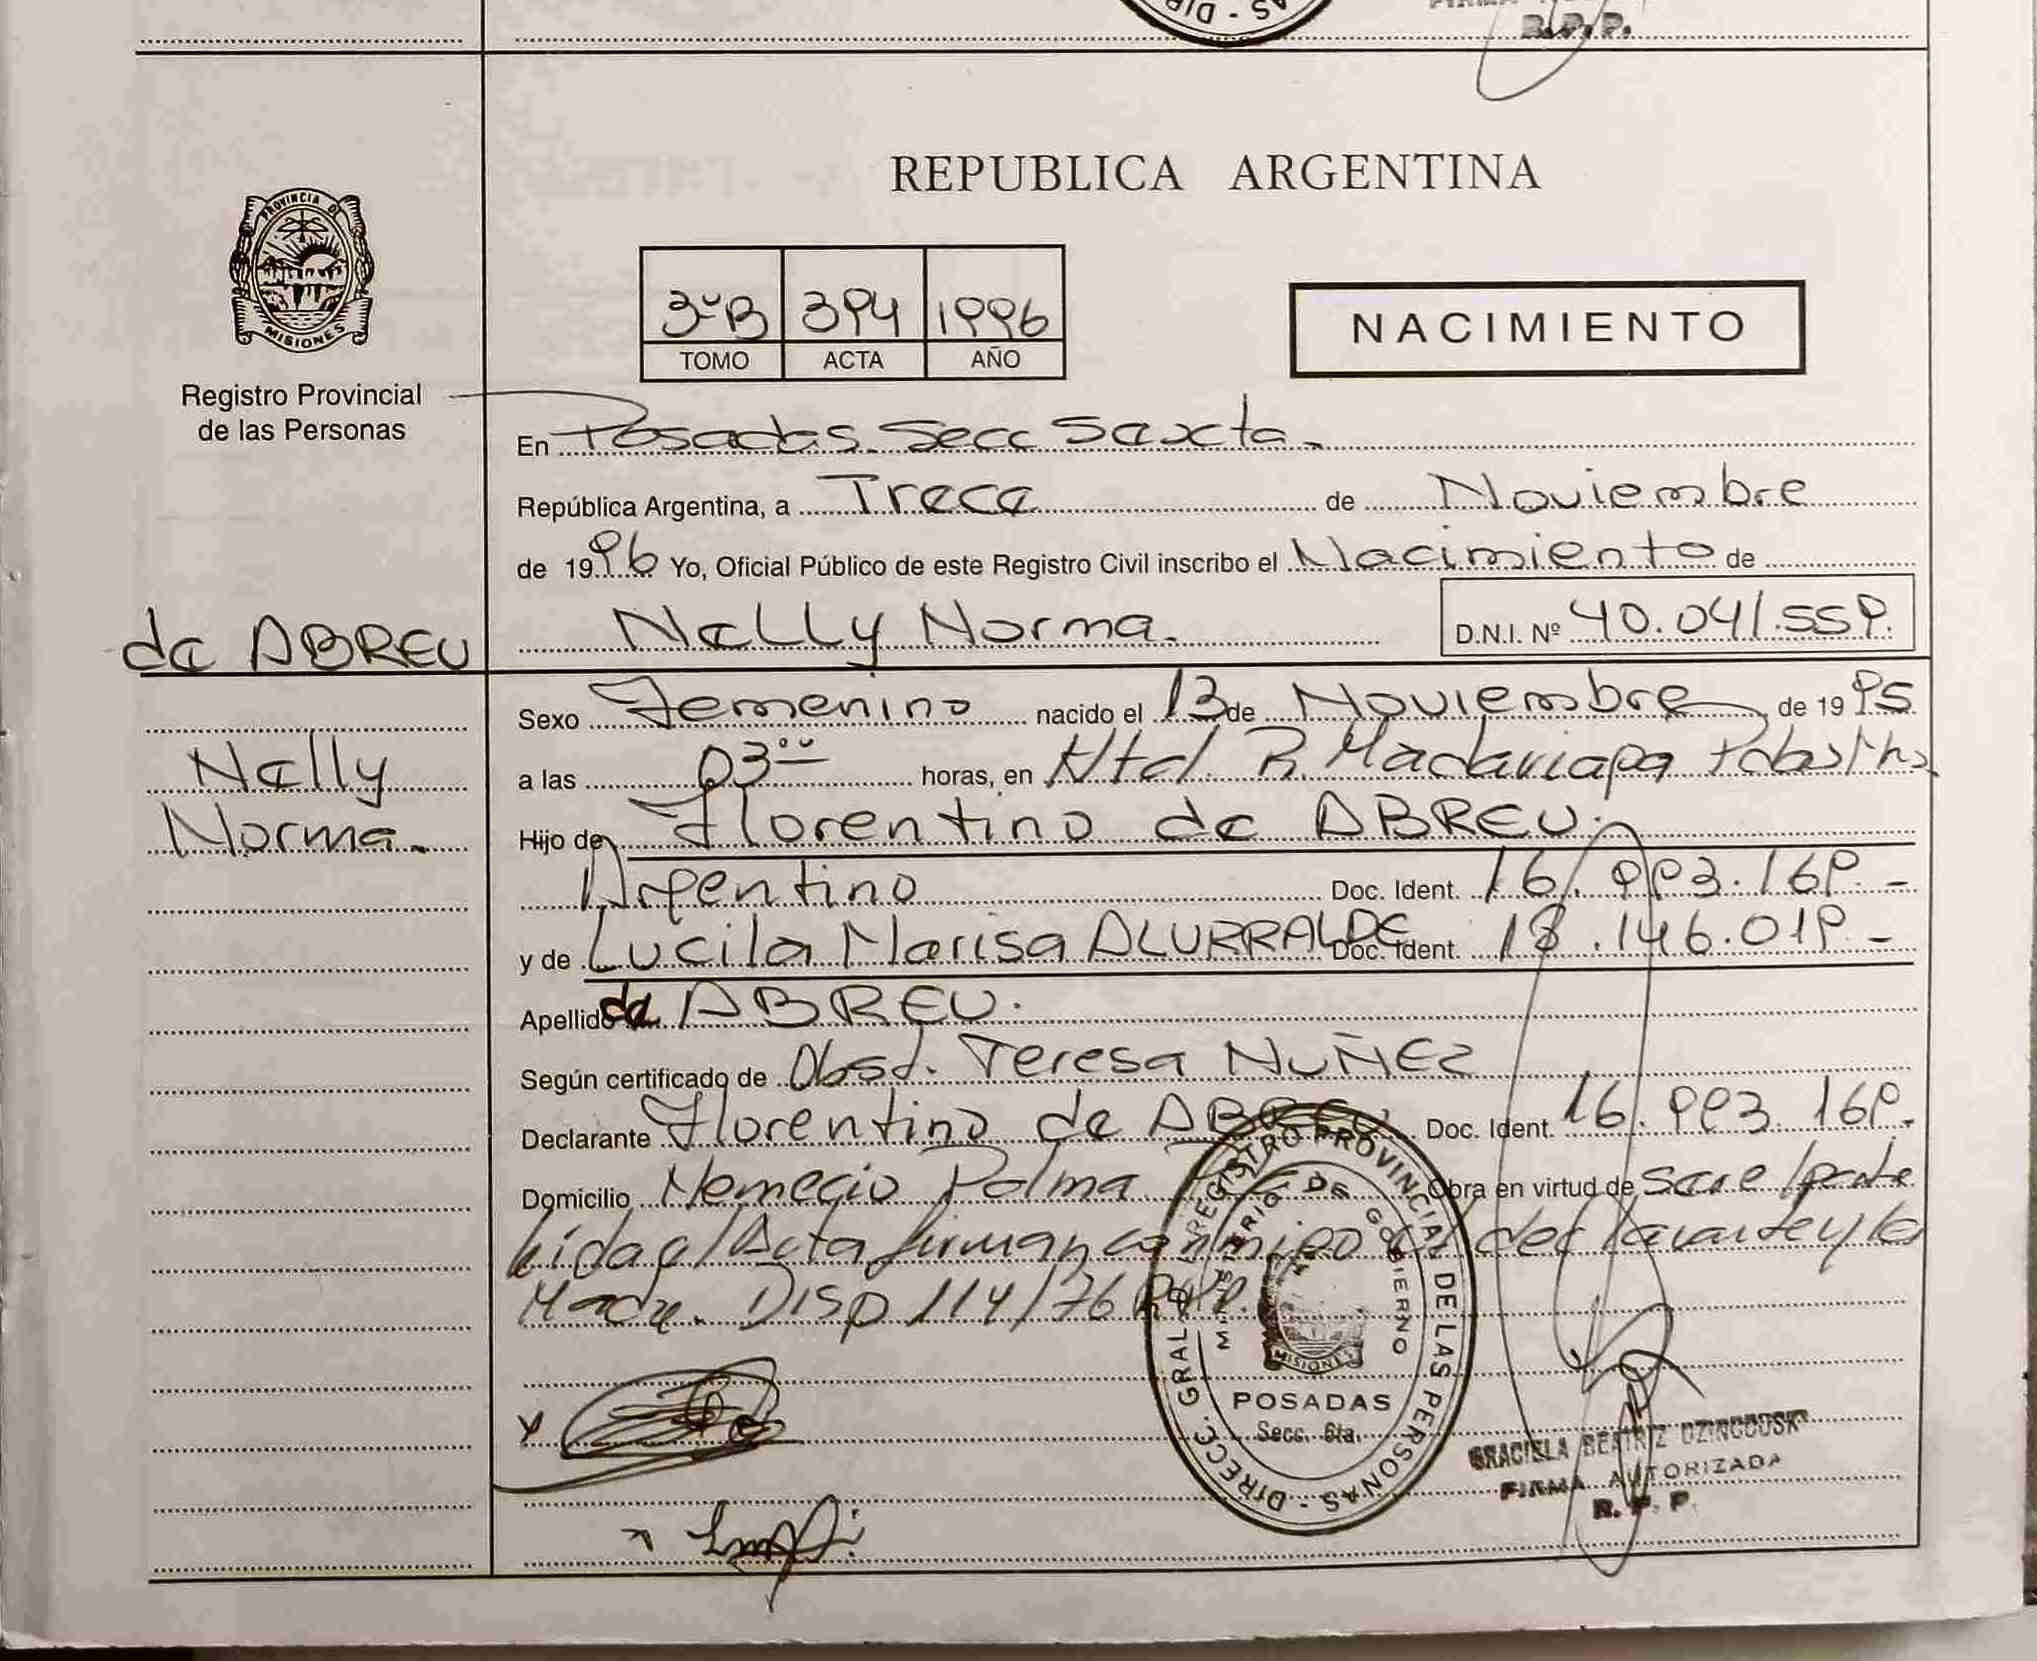 AS - DIR
R.P.P.
REPUBLICA ARGENTINA
PROVINCIA DE
MISIONES
Registro Provincial
de las Personas
3ºB 394 1996
TOMO ACTA AÑO
NACIMIENTO
En Posadas. Secc Sexta.
República Argentina, a Trece de Noviembre
de 1996 Yo, Oficial Público de este Registro Civil inscribo el Nacimiento de
Nelly Norma. D.N.I. Nº 40.041.559.
de ABREU
Nelly
Norma.
Sexo Femenino nacido el 13 de Noviembre de 1995
a las 03ºº horas, en Htal. R. Madariaga
Hijo de Florentino de ABREU.
Argentino Doc. Ident. 16.993.169.-
y de Lucila Marisa ALURRALDE Doc. Ident. 18.146.019.-
Apellido de ABREU.
Según certificado de Obsd. Teresa NUÑEZ
Declarante Florentino de ABREU. Doc. Ident. 16.993.169.-
Domicilio Nemecio Palma Obra en virtud de
Acta firman conmigo el declarante y la
Madre. Disp 114/76 R.P.P.
DIRECC. GRAL. DEL REGISTRO PROVINCIAL DE LAS PERSONAS -
MINISTERIO DE GOBIERNO
MISIONES
POSADAS
Secc. 6ta.
GRACIELA BEATRIZ
FIRMA AUTORIZADA
R. P. P.